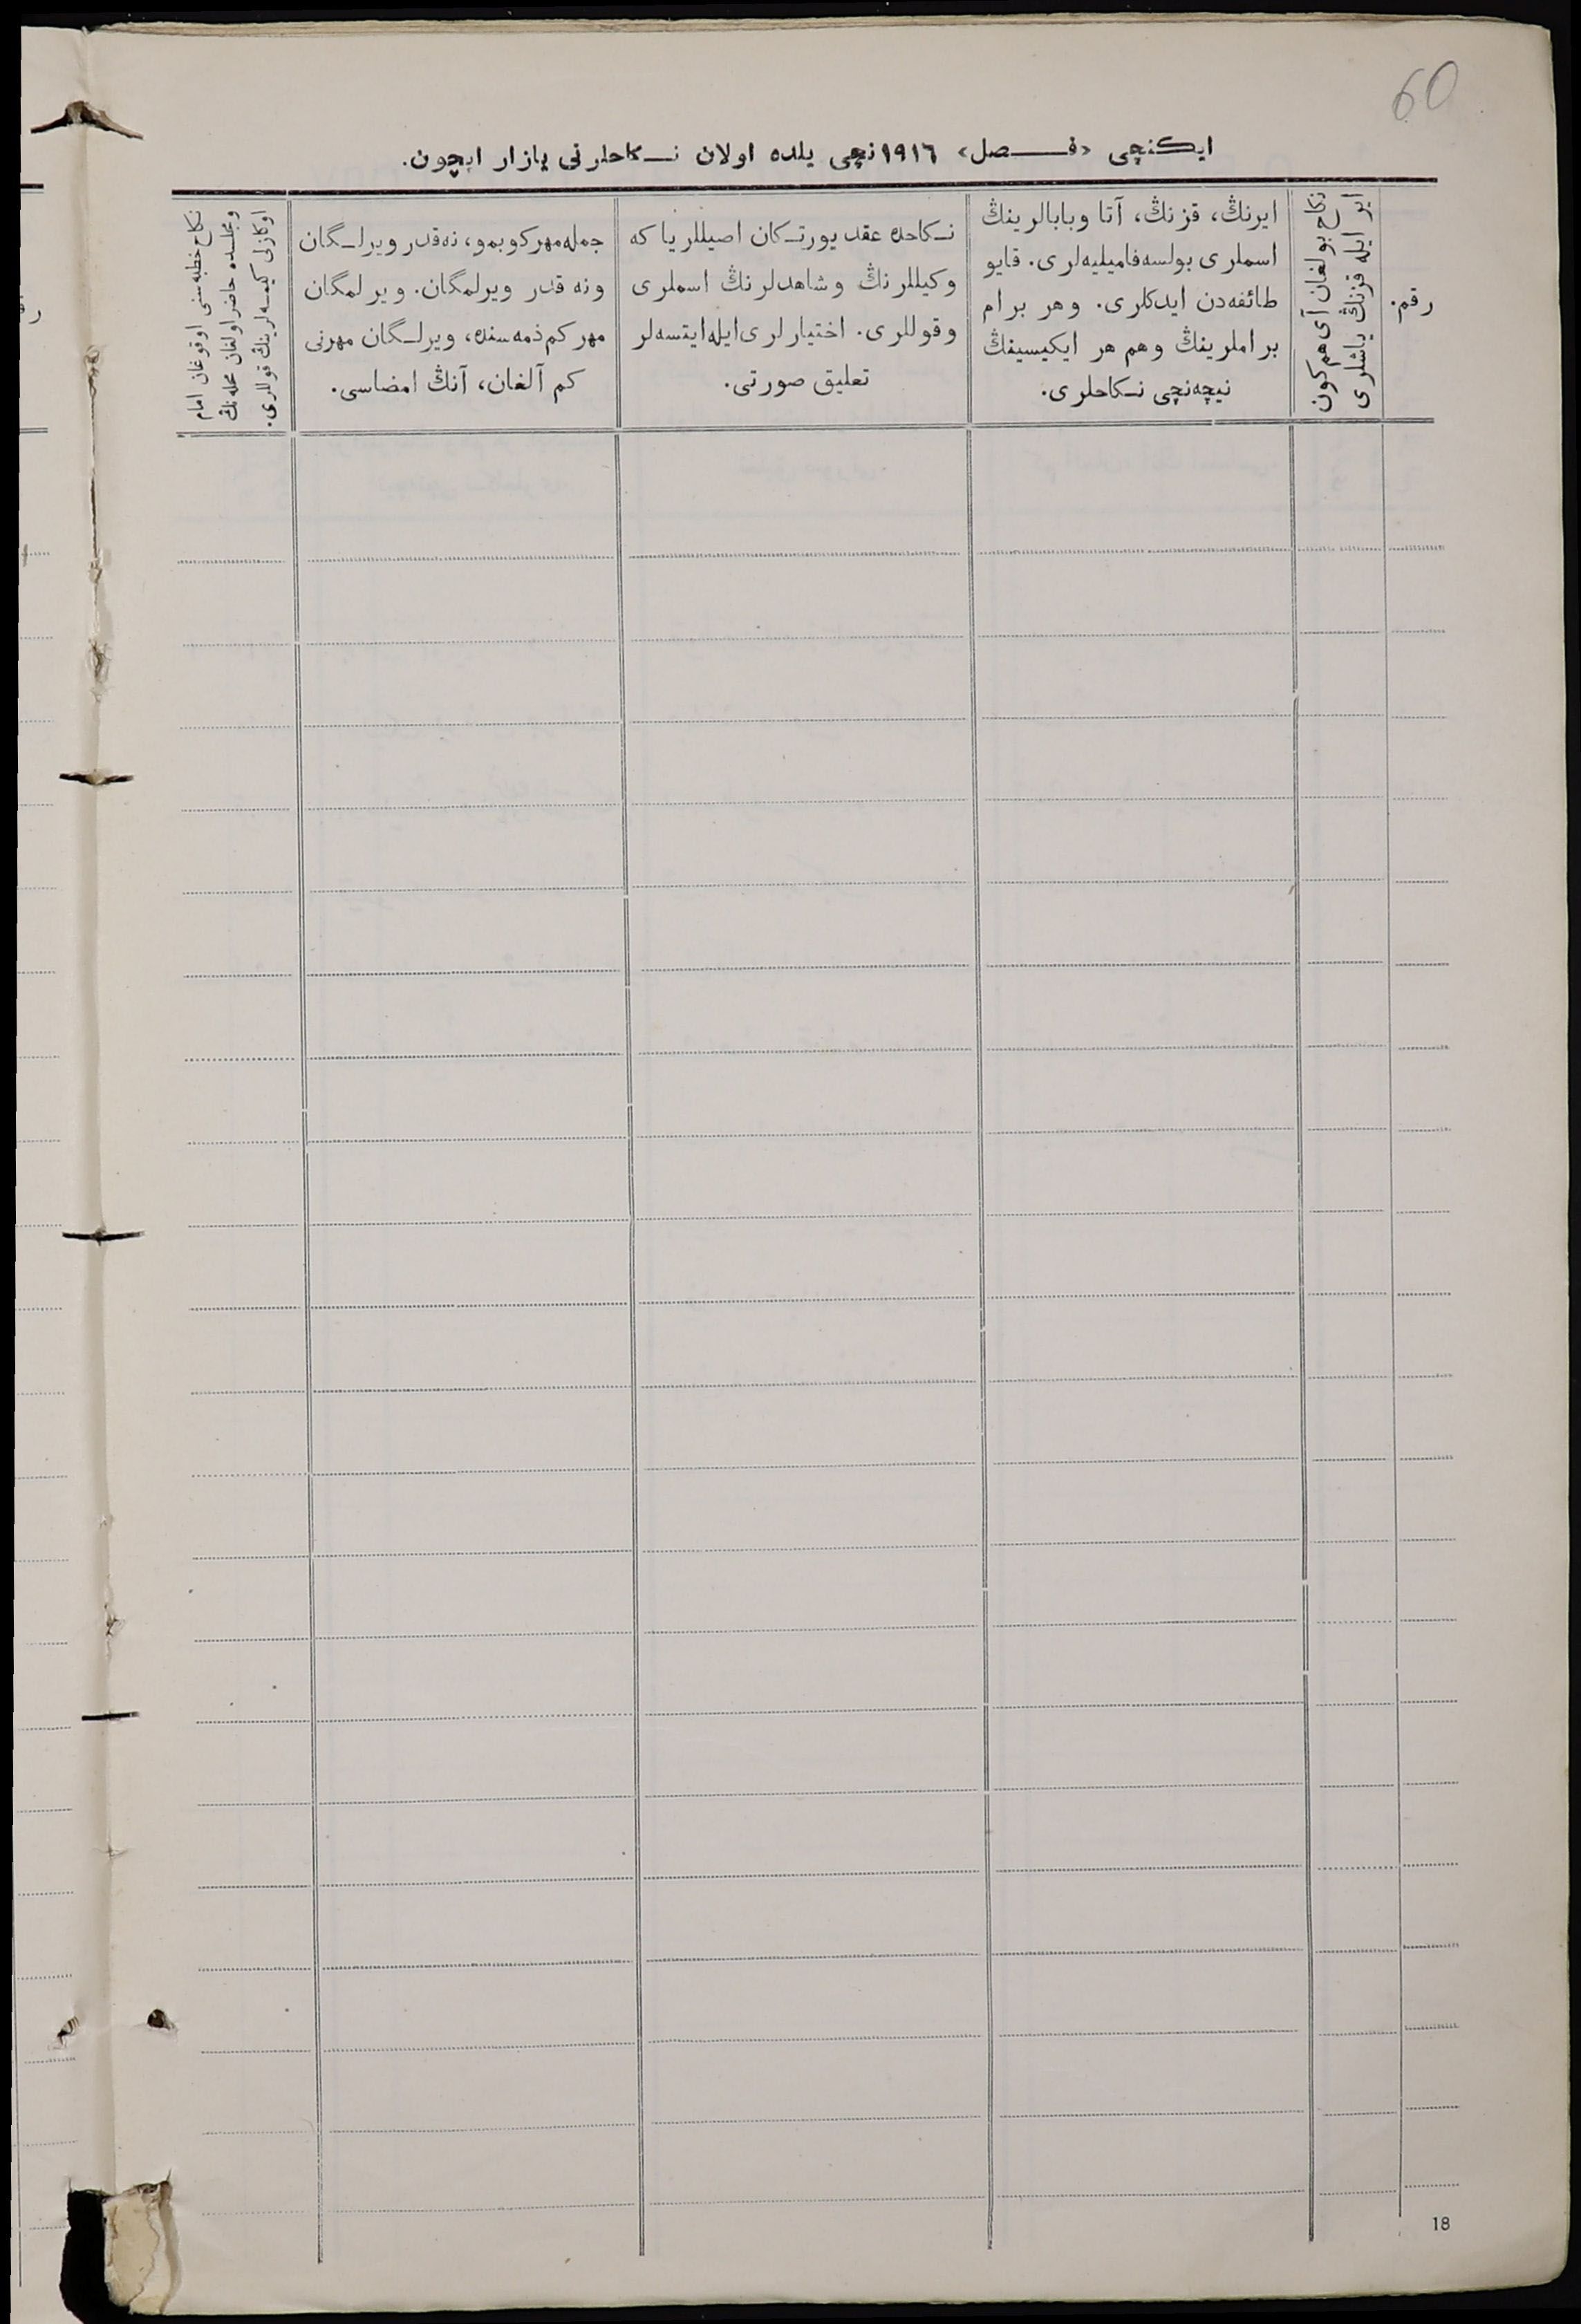 60
ایکنچی «فصل» ١٩١٦نچی یلده اولان نکاحلرنی یازار ایچون.
رقم.
نکاح بولغان آی هم کون
ایر ایله قزنڭ یاشلری
ایرنڭ، قزنڭ، آتا وبابالرینڭ
اسملری بولسه فامیلیه‌لری. قایو
طائفه‌دن ایدکلری. وهر برام
براملرینڭ وهم هر ایکیسینڭ
نیچه‌نچی نکاحلری.
نکاحده عقد یورتکان اصیللر یا که
وکیللرنڭ وشاهدلرنڭ اسملری
وقوللری. اختیارلری ایله ایتسه‌لر
تعلیق صورتی.
جمله مهر کوبمو، نه‌قدر ویرلگان
ونه قدر ویرلمگان. ویرلمگان
مهر کم ذمه‌سنده، ویرلگان مهرنی
کم آلغان، آنڭ امضاسی.
نکاح خطبه‌سنی اوقوغان امام
ومجلسده حاضر اولغان محله‌نڭ
اوکازلی کیمسه‌لرینڭ قوللری.
18